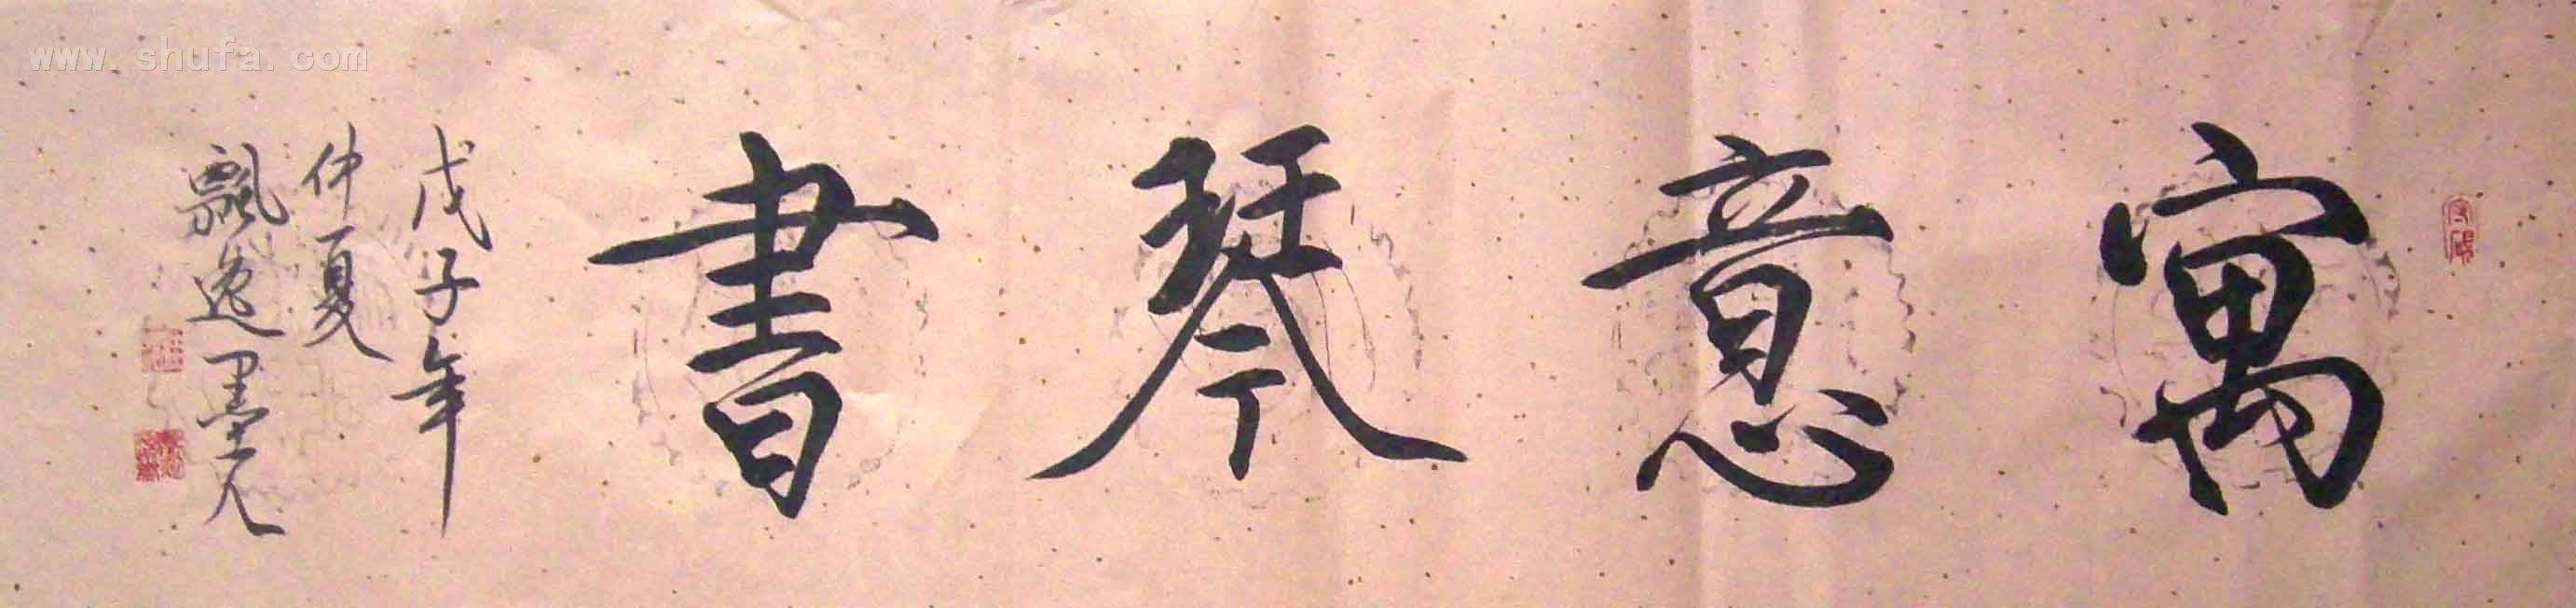 寓意琴書
戊子年
仲夏
飄逸墨人
www.shufa.com